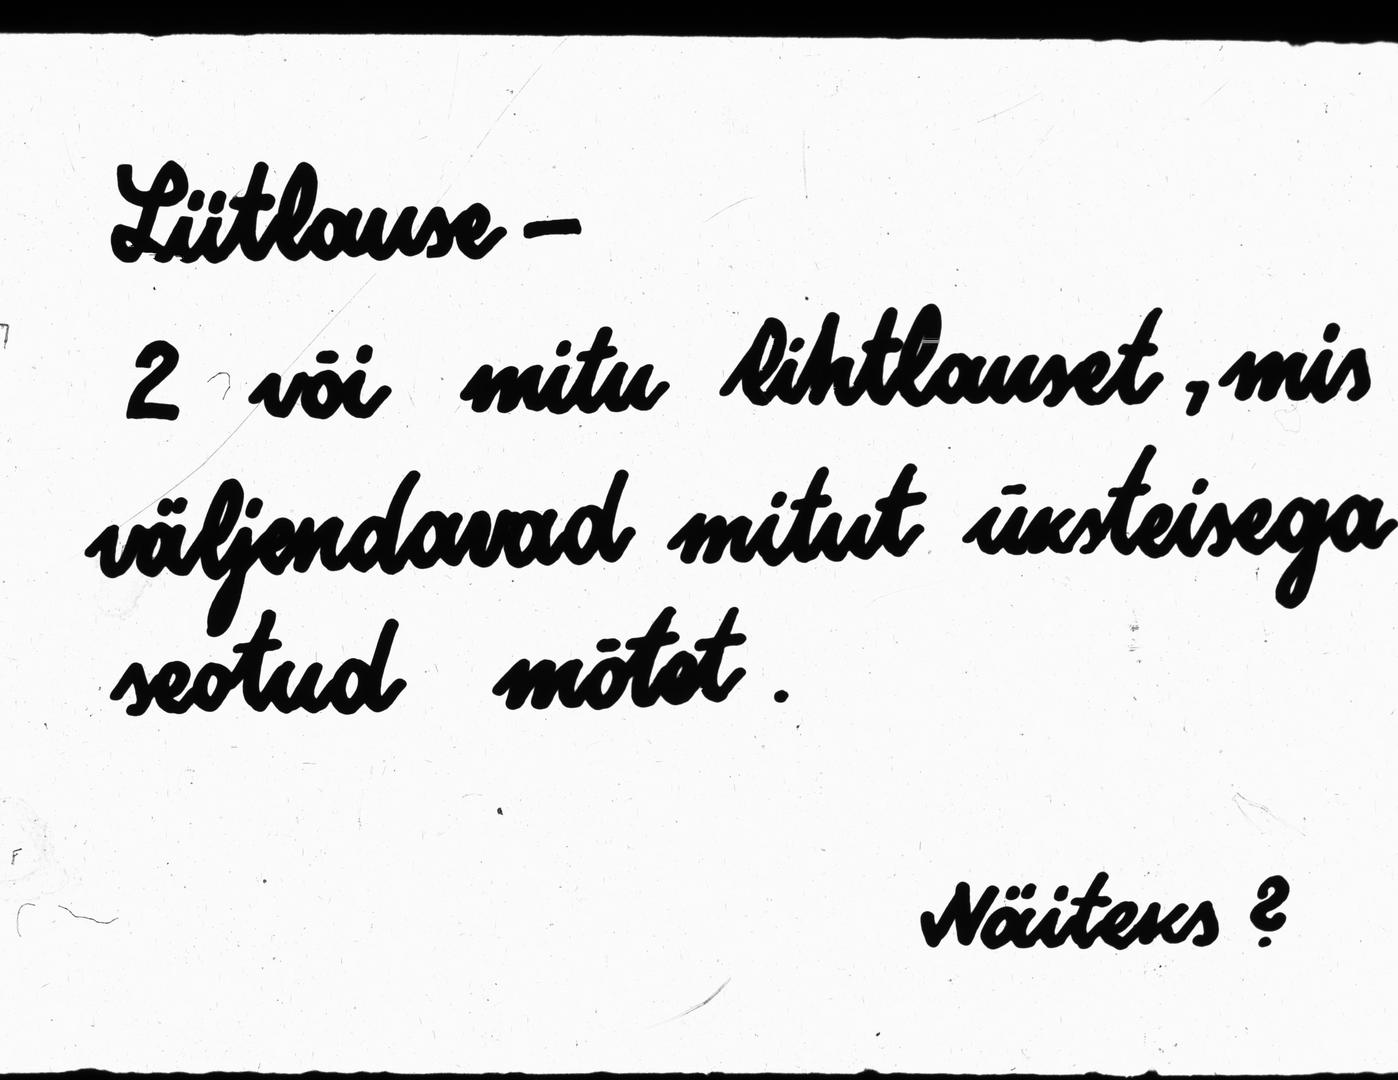 Liitlause –
2 või mitu lihtlauset, mis
väljendavad mitut üksteisega
seotud mõtet.
Näiteks?